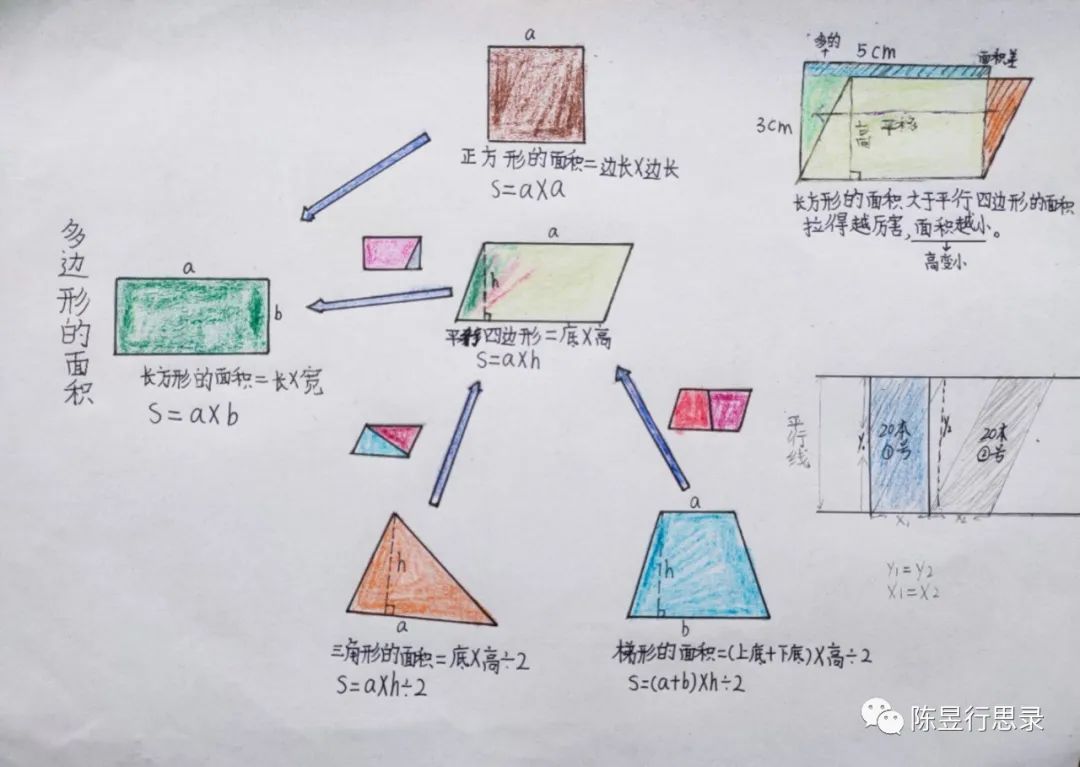 多边形的面积
a
正方形的面积=边长×边长
S=a×a
a
b
长方形的面积=长×宽
S=a×b
a
h
平行四边形=底×高
S=a×h
h
a
三角形的面积=底×高÷2
S=a×h÷2
a
h
b
梯形的面积=(上底+下底)×高÷2
S=(a+b)×h÷2
多的
5cm
面积差
3cm
高
平移
长方形的面积大于平行四边形的面积
拉得越厉害,面积越小。
高变小
平行线
Y₁
20本
①号
Y₂
20本
②号
X₁
X₂
Y₁=Y₂
X₁=X₂
陈昱行思录